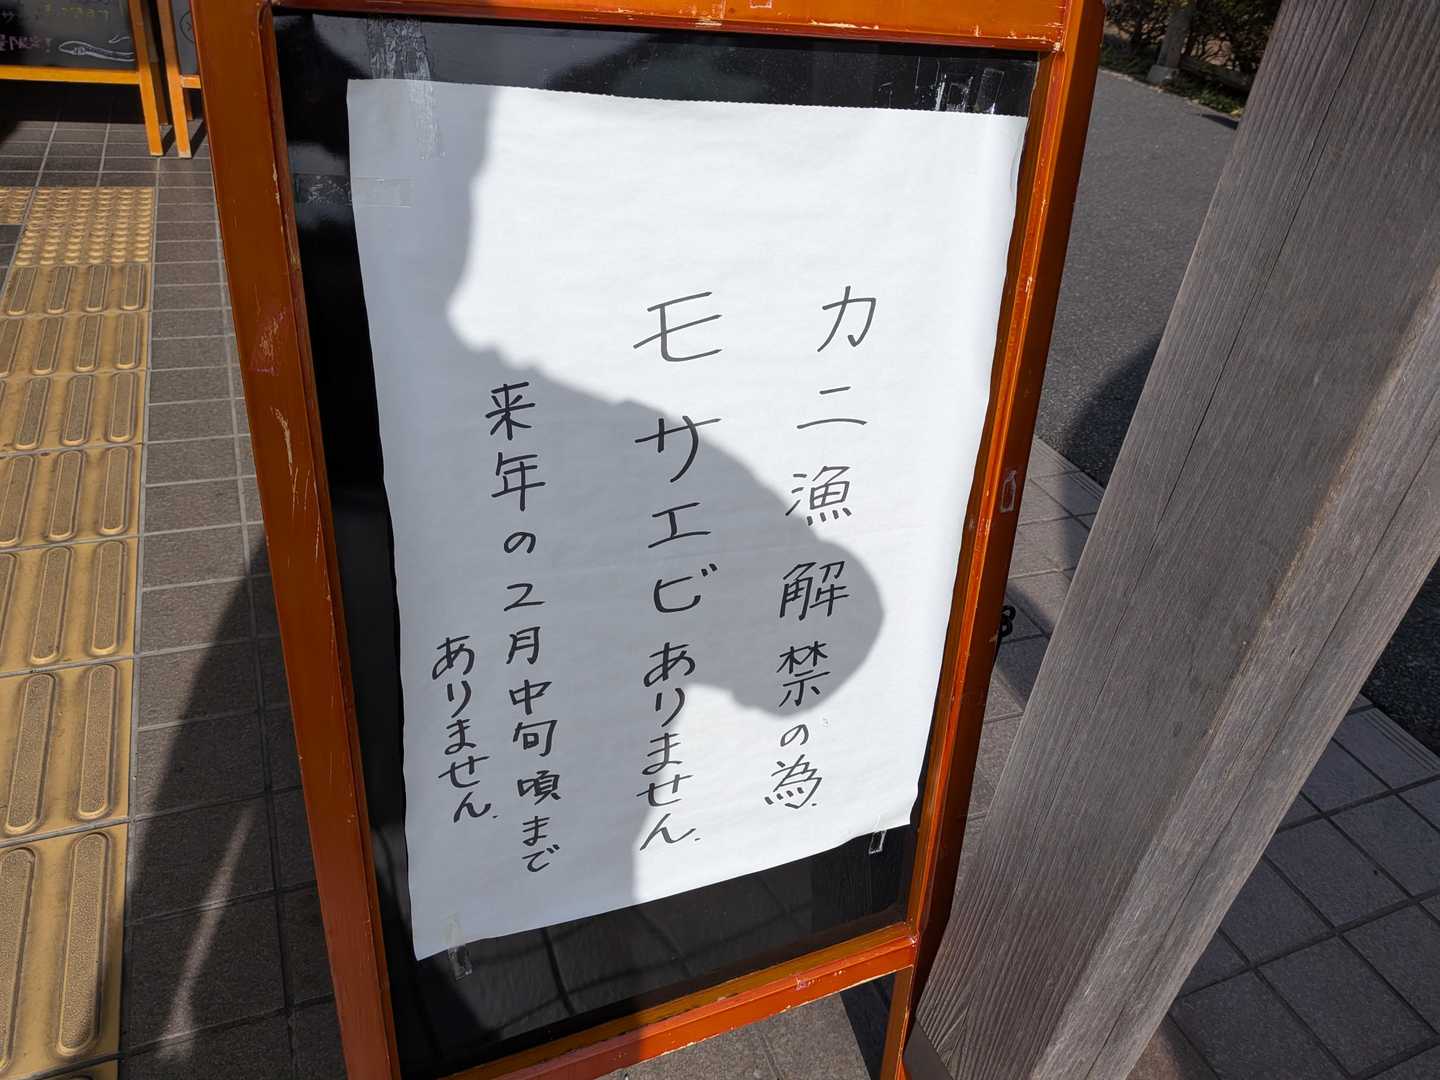 カニ漁解禁の為
モサエビありません.
来年の2月中旬頃まで
ありません.